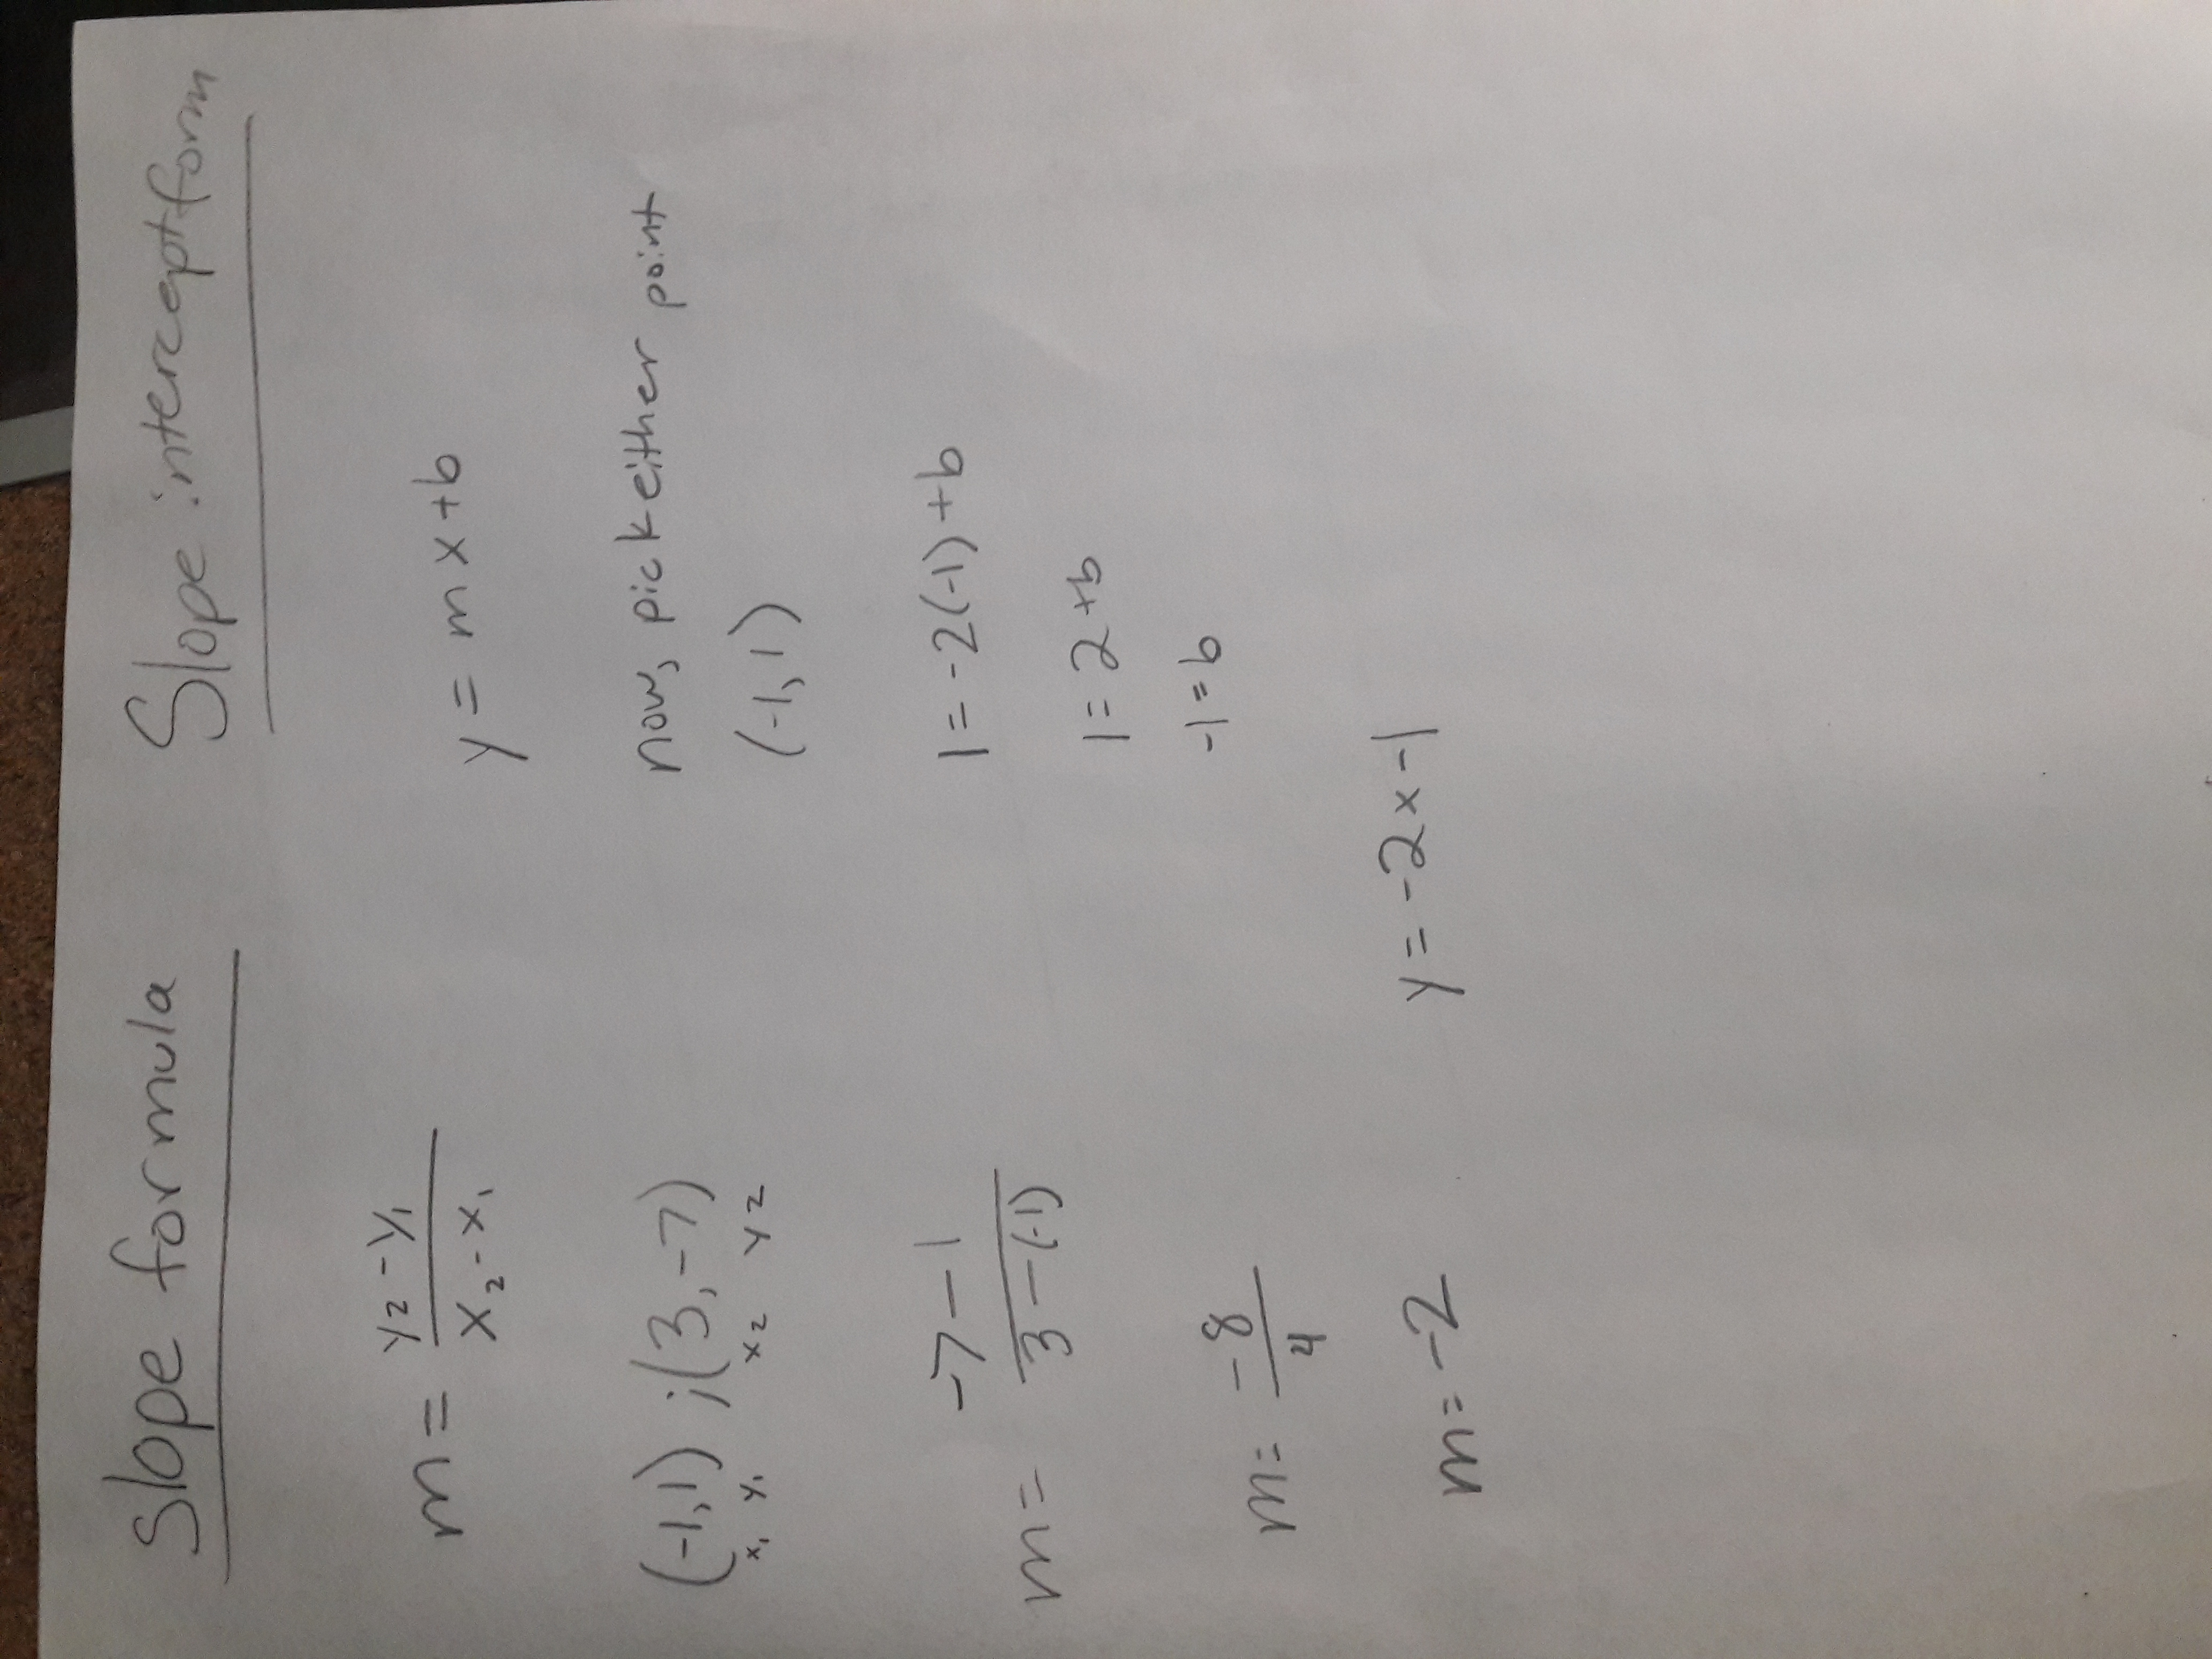 Slope formula
m = y₂ - y₁ / x₂ - x₁
(-1,1) ; (3,-7)
x₁ y₁ x₂ y₂
m = -7 - 1 / 3 - (-1)
m = -8 / 4
m = -2
Slope intercept form
y = mx+b
now, pick either point
(-1,1)
1 = -2(-1)+b
1 = 2+b
-1 = b
y = -2x-1